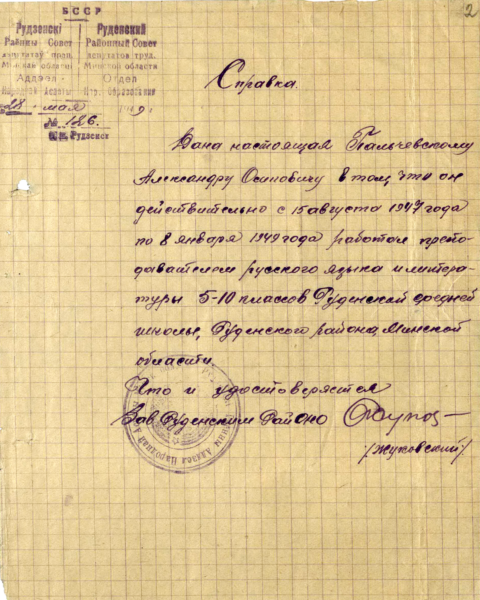 2
БССР
Рудзенскі
Раённы Совет
дэпутатаў прац.
Мінскай обласці
Аддзел
Народнай Асветы
Руденский
Районный Совет
депутатов труд.
Минской области
Отдел
Нар. Образования
28 мая 1949 г.
№ 126.
Рудзенск
Справка.
Дана настоящая Пальчевскому
Александру Осиповичу в том, что он
действительно с 15 августа 1947 года
по 8 января 1949 года работал препо-
давателем русского языка и литера-
туры 5-10 классов Руденской средней
школы, Руденского района, Минской
области.
Что и удостоверяется
Зав Руденским Районо
/Жуковский/